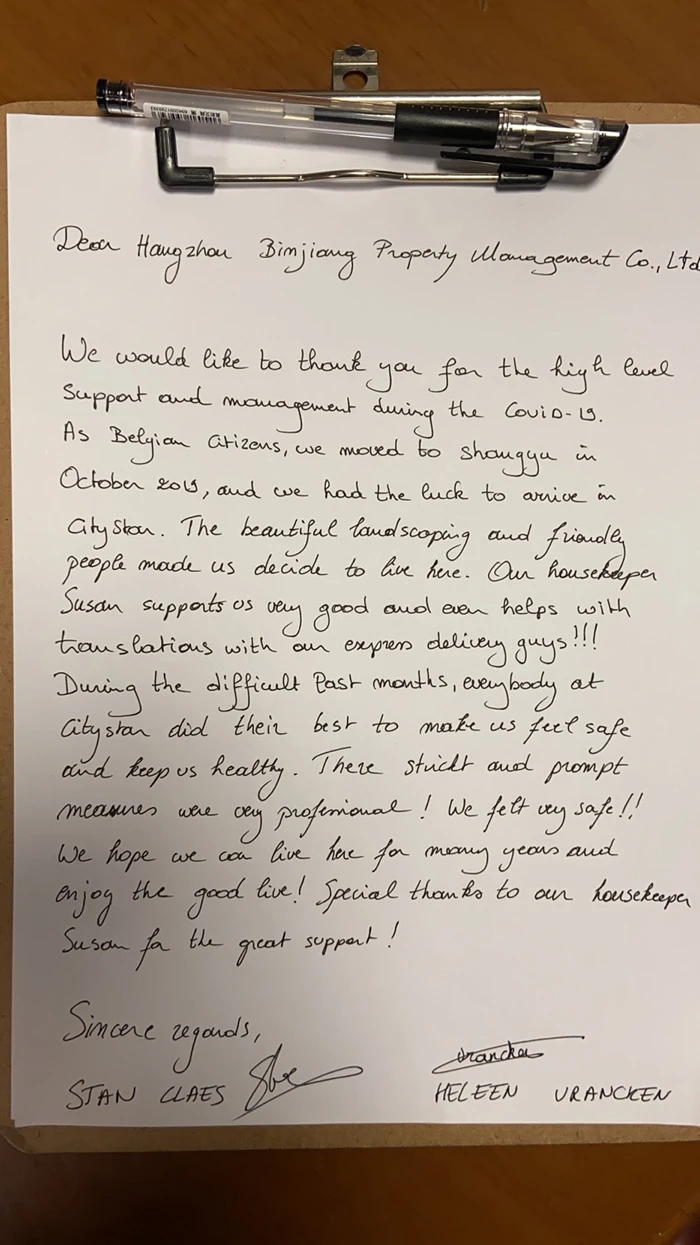 Dear Hangzhou Binjiang Property Management Co., Ltd
We would like to thank you for the high level
Support and management during the Covid-19.
As Belgian Citizens, we moved to Shangyu in
October 2019, and we had the luck to arrive in
CityStar. The beautiful landscaping and friendly
people made us decide to live here. Our housekeeper
Susan supports us very good and even helps with
translations with our express delivery guys!!!
During the difficult Past months, everybody at
Citystar did their best to make us feel safe
and keep us healthy. There strickt and prompt
measures were very professional! We felt very safe!!
We hope we can live here for many years and
enjoy the good live! Special thanks to our housekeeper
Susan for the great support!
Sincere regards,
Vrancken
STAN CLAES
HELEEN VRANCKEN